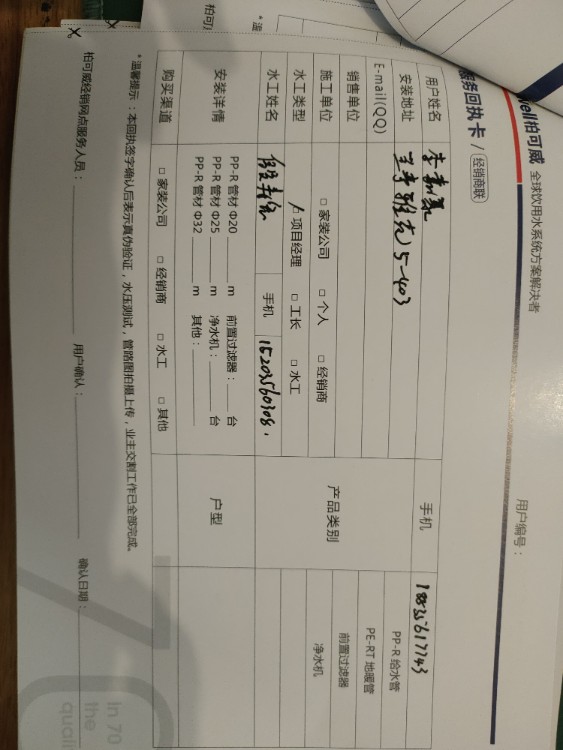 well柏可威 全球饮用水系统方案解决者
用户编号：
服务回执卡 / 经销商联
用户姓名
手机 18835617743
安装地址 兰亭雅苑5-403
E-mail(QQ)
销售单位
施工单位 □ 家装公司 □ 个人 □ 经销商
水工类型 □ 项目经理 □ 工长 □ 水工
水工姓名
手机 15203560308.
产品类别
PP-R 给水管
PE-RT 地暖管
前置过滤器
净水机
安装详情 PP-R 管材 Φ20 m 前置过滤器： 台
PP-R 管材 Φ25 m 净水机： 台
PP-R 管材 Φ32 m 其他：
户型
购买渠道 □ 家装公司 □ 经销商 □ 水工 □ 其他
*温馨提示：本回执签字确认后表示真伪验证，水压测试，管路图拍摄上传，业主交割工作已全部完成。
柏可威经销网点服务人员： 用户确认： 确认日期：
In 70
the
quali
* 温
柏可